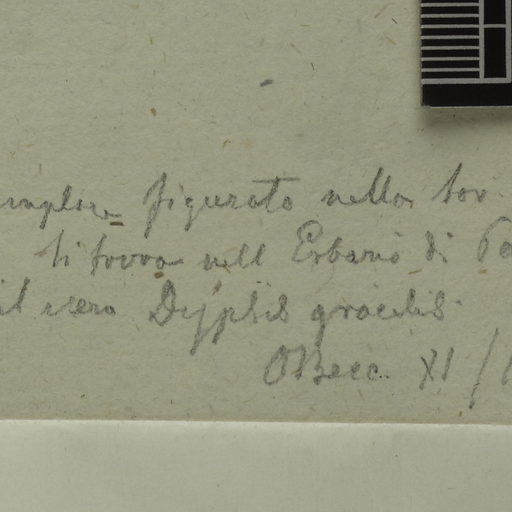 figurato nella tav
si trova nell Erbario di
il vero Dypsis gracilis
OBecc. XI /